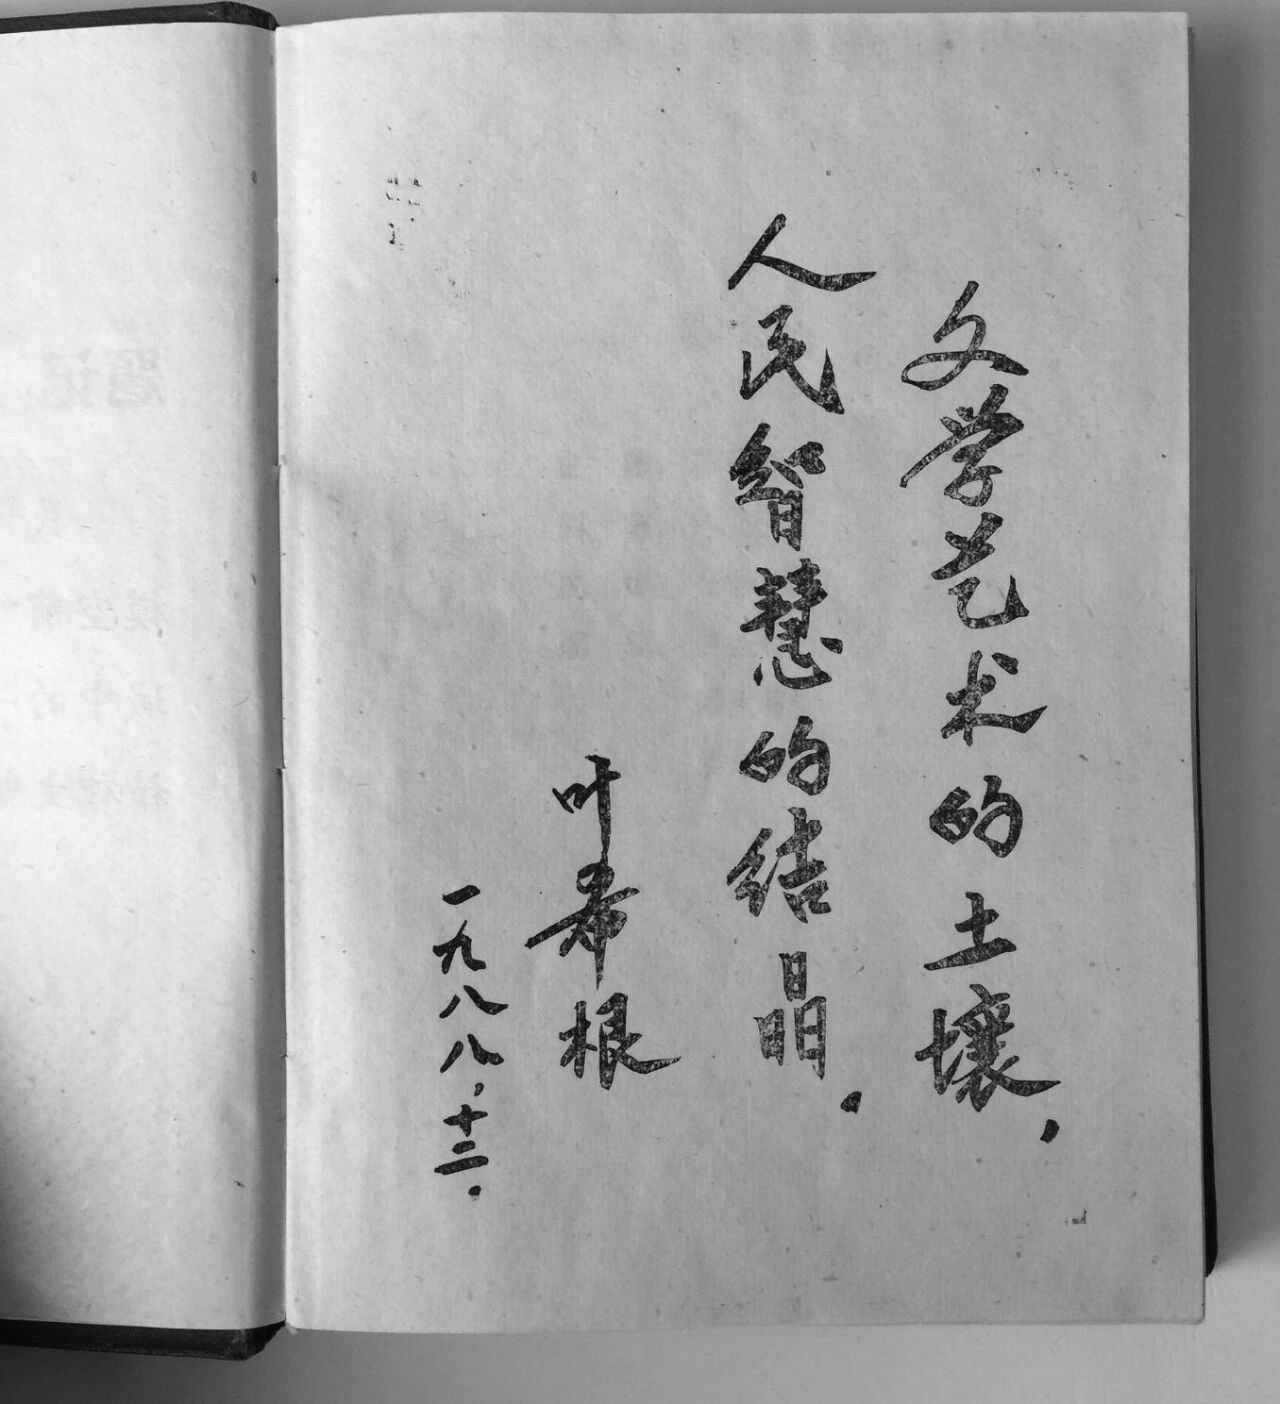 文学艺术的土壤，
人民智慧的结晶．
叶希根
一九八八，十二．